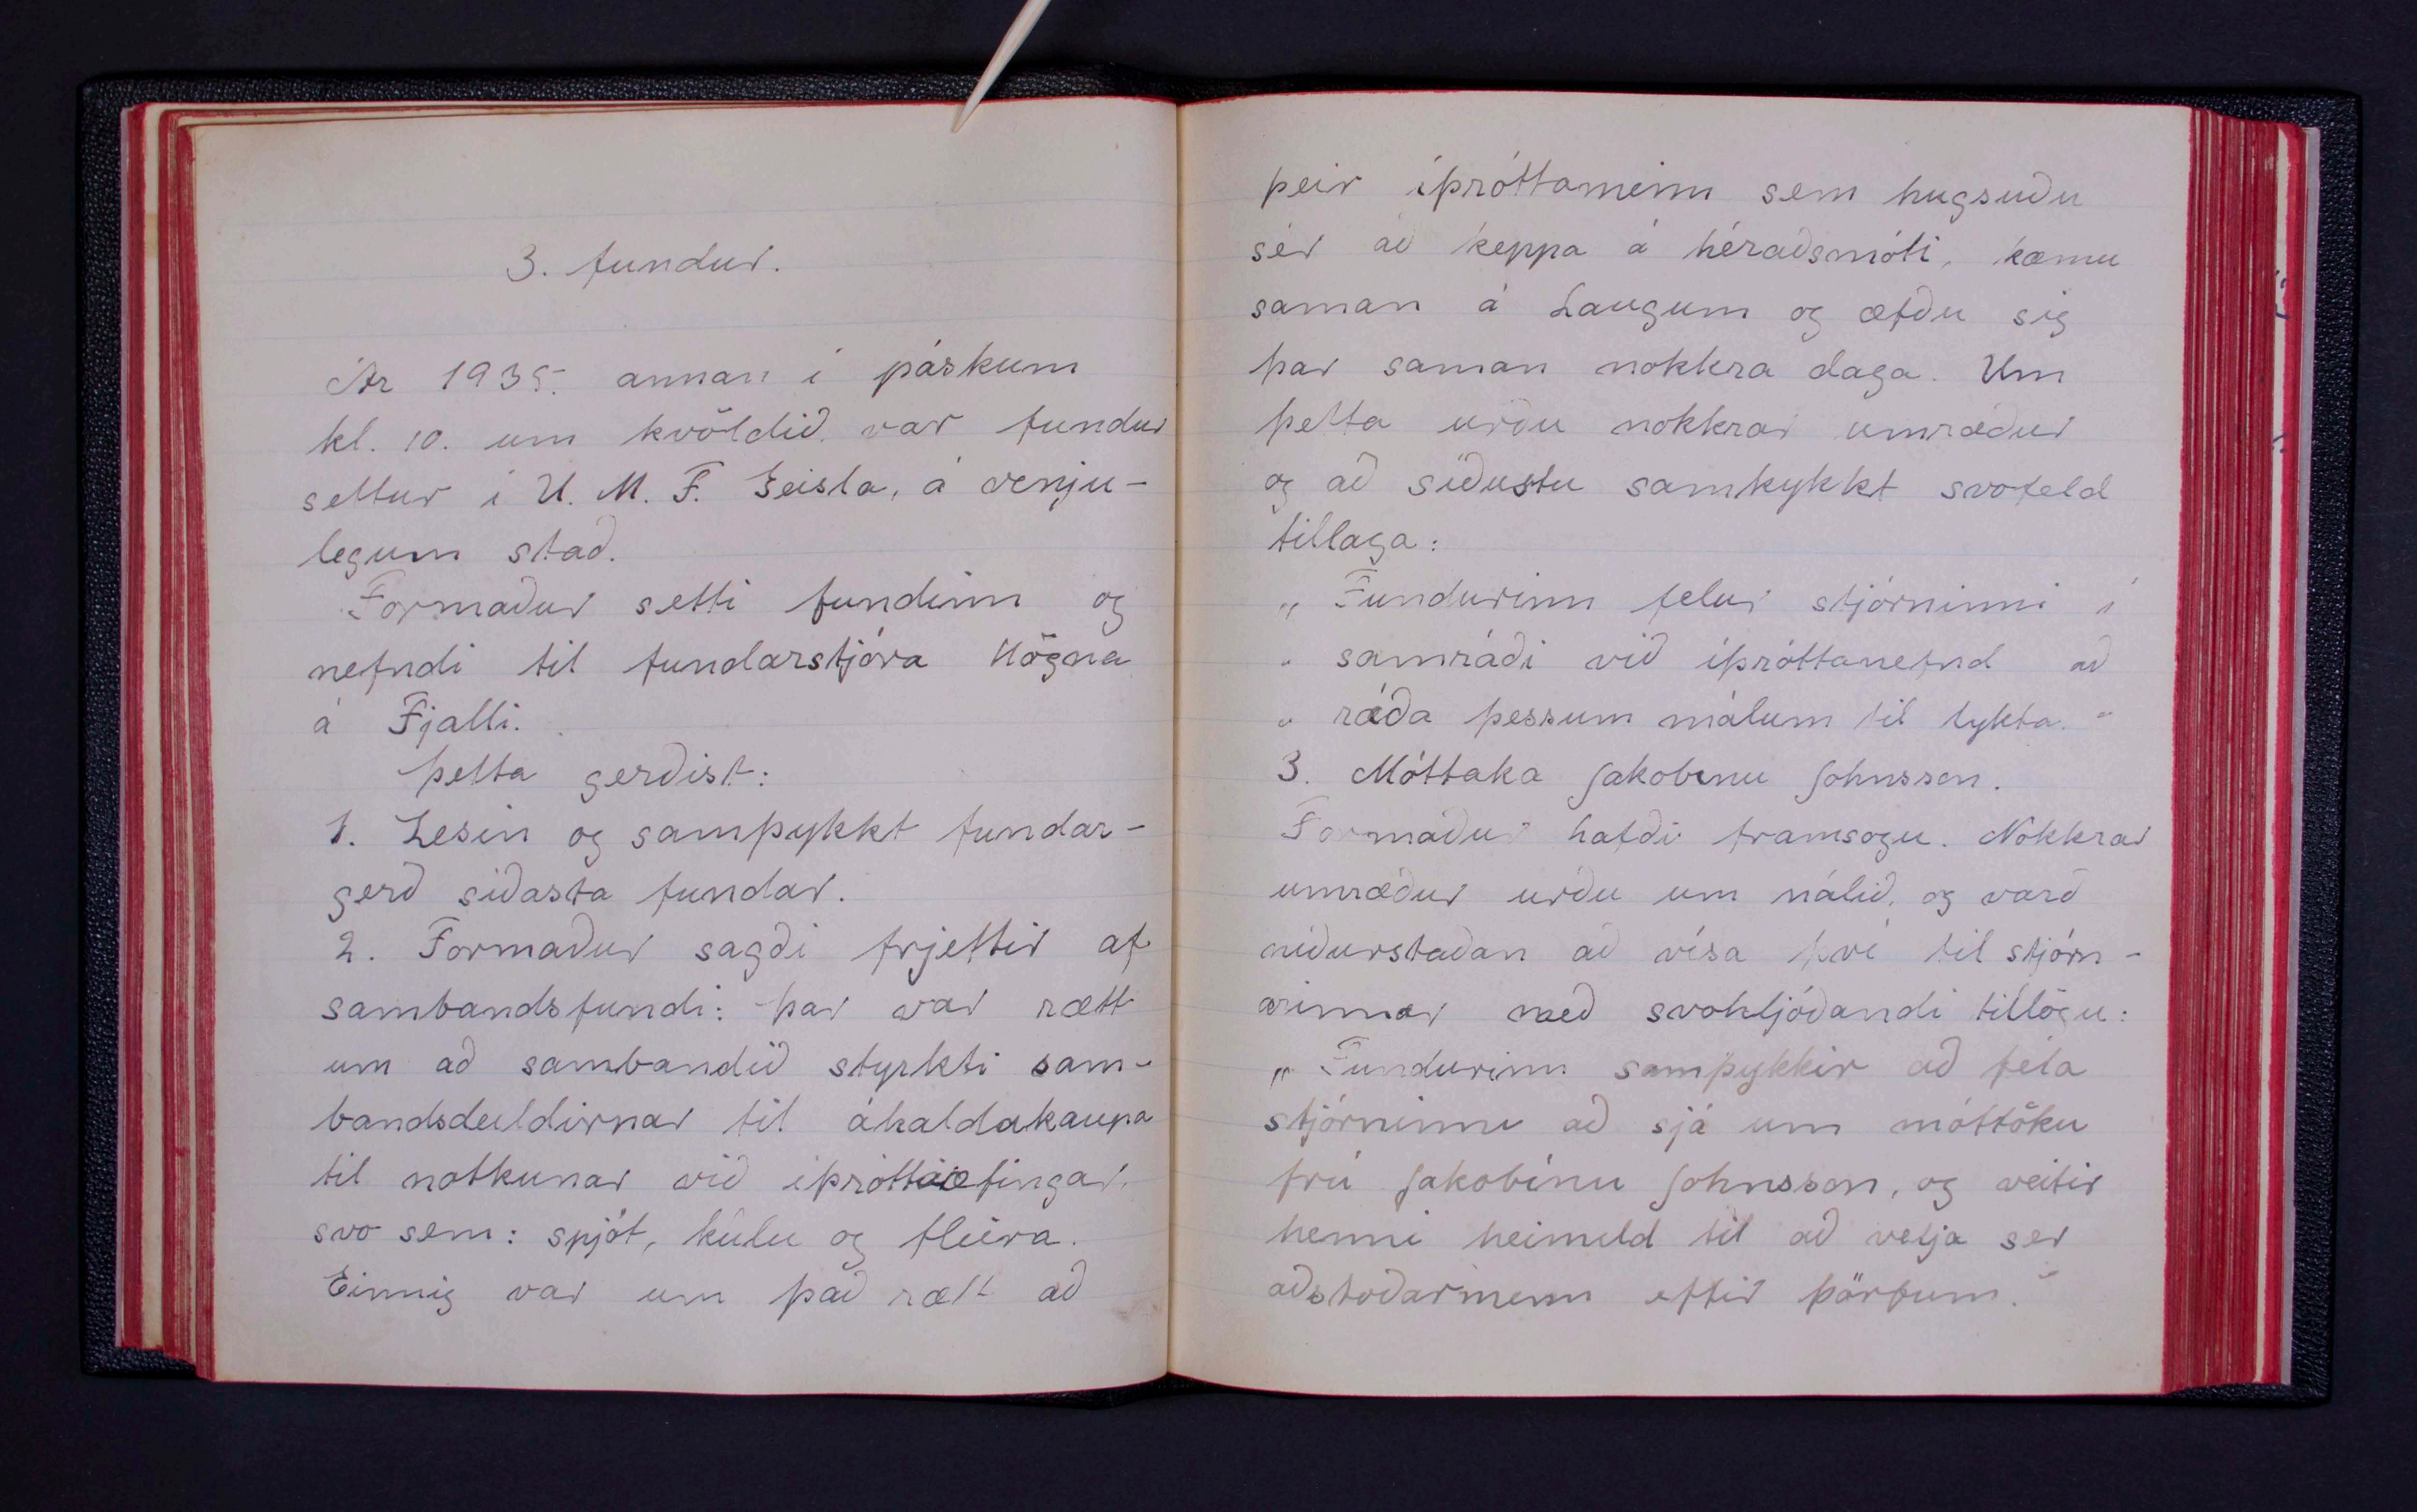 3. fundur.
Ár 1935. annan í páskum
kl. 10. um kvöldið. var fundur
settur í U. M. F. Geisla, á venju-
legum stað.
Formaður setti fundinn og
nefndi til fundarstjóra Högna
á Fjalli.
Þetta gerðist:
1. Lesin og samþykkt fundar-
gerð síðasta fundar.
2. Formaður sagði frjettir af
sambandsfundi: Þar var rætt
um að sambandið styrkti sam-
bandsdeildirnar til áhaldakaupa
til notkunar við íþróttaæfingar.
svo sem: spjót, kúlu og fleira.
Einnig var um það rætt að
þeir íþróttamenn sem hugsuðu
sér að keppa á héraðsmóti, kæmu
saman á Laugum og æfðu sig
þar saman nokkra daga. Um
þetta urðu nokkrar umræður
og að síðustu samkykkt svofeld
tillaga:
„ Fundurinn felur stjórninni í
„ samráði við íþróttanefnd að
„ ráða þessum málum til lykta."
3. Móttaka Jakobínu Johnsson.
Formaður hafði framsogu. Nokkrar
umræður urðu um málið, og varð
niðurstaðan að vísa því til stjórn-
arinnar með svohljóðandi tillögu:
„ Fundurinn samþykkir að fela
stjórninni að sjá um móttöku
frú Jakobínu Johnsson, og veitir
henni heimild til að velja ser
aðstoðarmenn eftir þörfum."